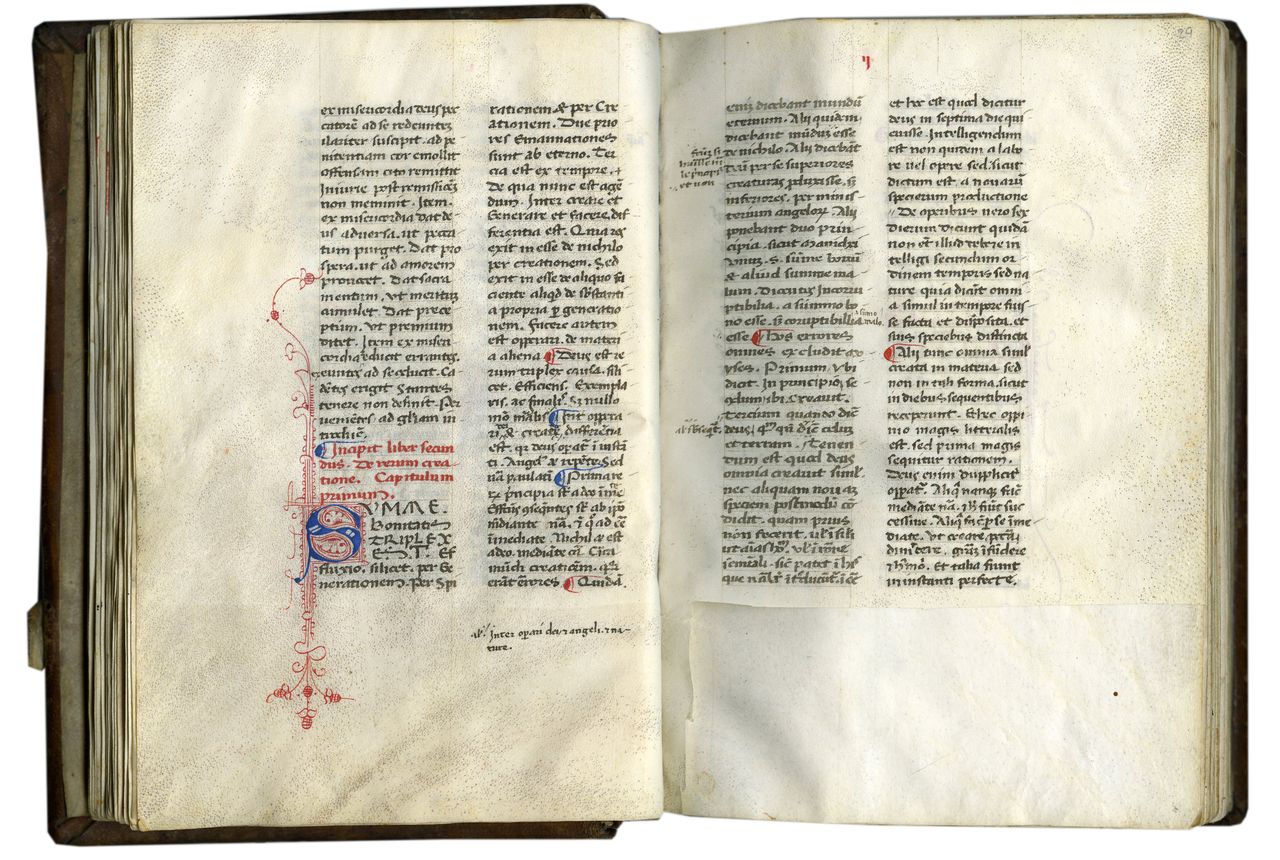 ex misericordia deus pec
catorē ad se redeuntez
ilariter suscipit. ad pe
nitentiam cor emollit
Offensam cito remittit
Iniurie post remissionē
non meminit. Item.
ex misericordia dat de
us adversa. ut pecca
tum purget. Dat pro
spera. ut ad amorem
prouocet. Dat sacra
mentum. Vt meritum
amulet. Dat prece
ptum. Vt premium
ditet. Item ex miseri
cordia educit errantes.
geuntes ad se educit. Ca
dētes erigit Stantes
tenere non definit. Per
uenietes ad gl̄iam in
troducit.
Incipit liber secun
dus. De rerum crea
tione. Capitulum
primum.
SVMME.
Bonitatis
TRIPLEX
EST. Ef
fluxio. silicet. per Ge
nerationem. Per Spi
rationem. & per Cre
ationem. Due prio
res Emannationes
sunt ab eterno. Ter
cia est ex tempore. +
De qua nunc est agē
dum. Inter creare et
Generare et facere. dif
ferentia est. Quia res
exit in esse de nichilo
per creationem. Sed
exit in esse de aliquo fa
ciente aliqd de sb̄stanti
a propria p̄ generatio
nem. Facere autem
est opperari. de materi
a aliena Deus est re
rum triplex causa. sili
cet. Efficiens. Exempla
ris. ac finalis. Sz nullo
mō malis Int̄ oppera
ri. & creare differētia
est. qz deus opat̄ ī instā
ti. Angel' & repēte. Sed
nā paulatī Prima re
rz p̄ncipia st̄ a deo īme
Effcūs 9seqntes st̄ ab ipō
mēdiante nā.
īmediate. Nichil & est
adeo. mediate
mūdi creationē.
erāt errores Quidā.
al' Inter opari dei & angeli. & na-
ture.
29
ij
enīz dicebant mundū
eternum. Alii quidem
dicebant mūduz esse
de nichilo. Alii dicebāt
deū per se superiores
creaturas pduxisse. sz
inferiores. per minis-
terium angeloꝝ. Alii
ponebant duo prin-
cipia. sicut manichei
Vnuz. s. sūme bonū
& aliud summe ma-
lum. Dicentes Incorru
ptibilia. a summo bo
no esse. sz coruptibillia
a sūmo malo.
esse Hos errores
omnes excludit mo-
yses. Primum Vbi
dicit In principio. se
cdum ibi. creauit.
Tercium quando diē
deus. qz qn̄ dicit celuz
et terram. Tenen
dum est quod deus
omnia creauit simul.
nec aliquam nouaz
speciem postmodū cō
didit. quam prius
non fecerit. ul' ī sili
ut ī aīab9. ul' ī
seminali. sic patet ī hiis
que
et hec est quod dicitur
deus in septima die qui
euisse. Intelligendum
est non quitem a labo
re uel opere sed. sicut
dictum est. a nouarū
specierum productione
De operibus uero sex
Dierum Dicunt quidā
non et illud debere in
telligi secundum or
dinem temporis sed na
ture quia dicūt omni
a simul in tempore fuis
se facta et disposita. et
suis speciebus distincta
Alii tunc omnia simul
creata in materia sed
non in tali forma. sicut
in diebus sequentibus
receperunt. Et hec oppi
nio magis litteralis
est. sed prima magis
sequitur rationem.
Deus enim dupplicit̄
oppat̄. Aliq̄ nanque
mediāte nā. fiūt suc
cessiue. Aliq̄ facit p se īme
diate. Vt creare.
Et talia fiunt
in instanti perfecte.